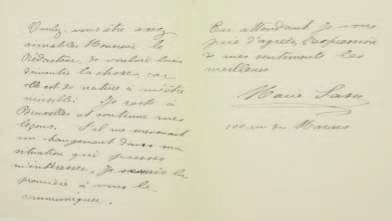 Voulez-vous être assez
aimable Monsieur le
Rédacteur de vouloir bien
démentir la chose, car
elle est de nature à m'être
nuisible. Je reste à
Bruxelles et continue mes
leçons. S'il me survenait
un changement dans ma
situation qui puisse
m'intéresser, je serais la
première à vous le
communiquer.
En attendant je vous
prie d'agréer, l'expression
de mes sentiments les
meilleurs
Marie Sasse
rue du Marais